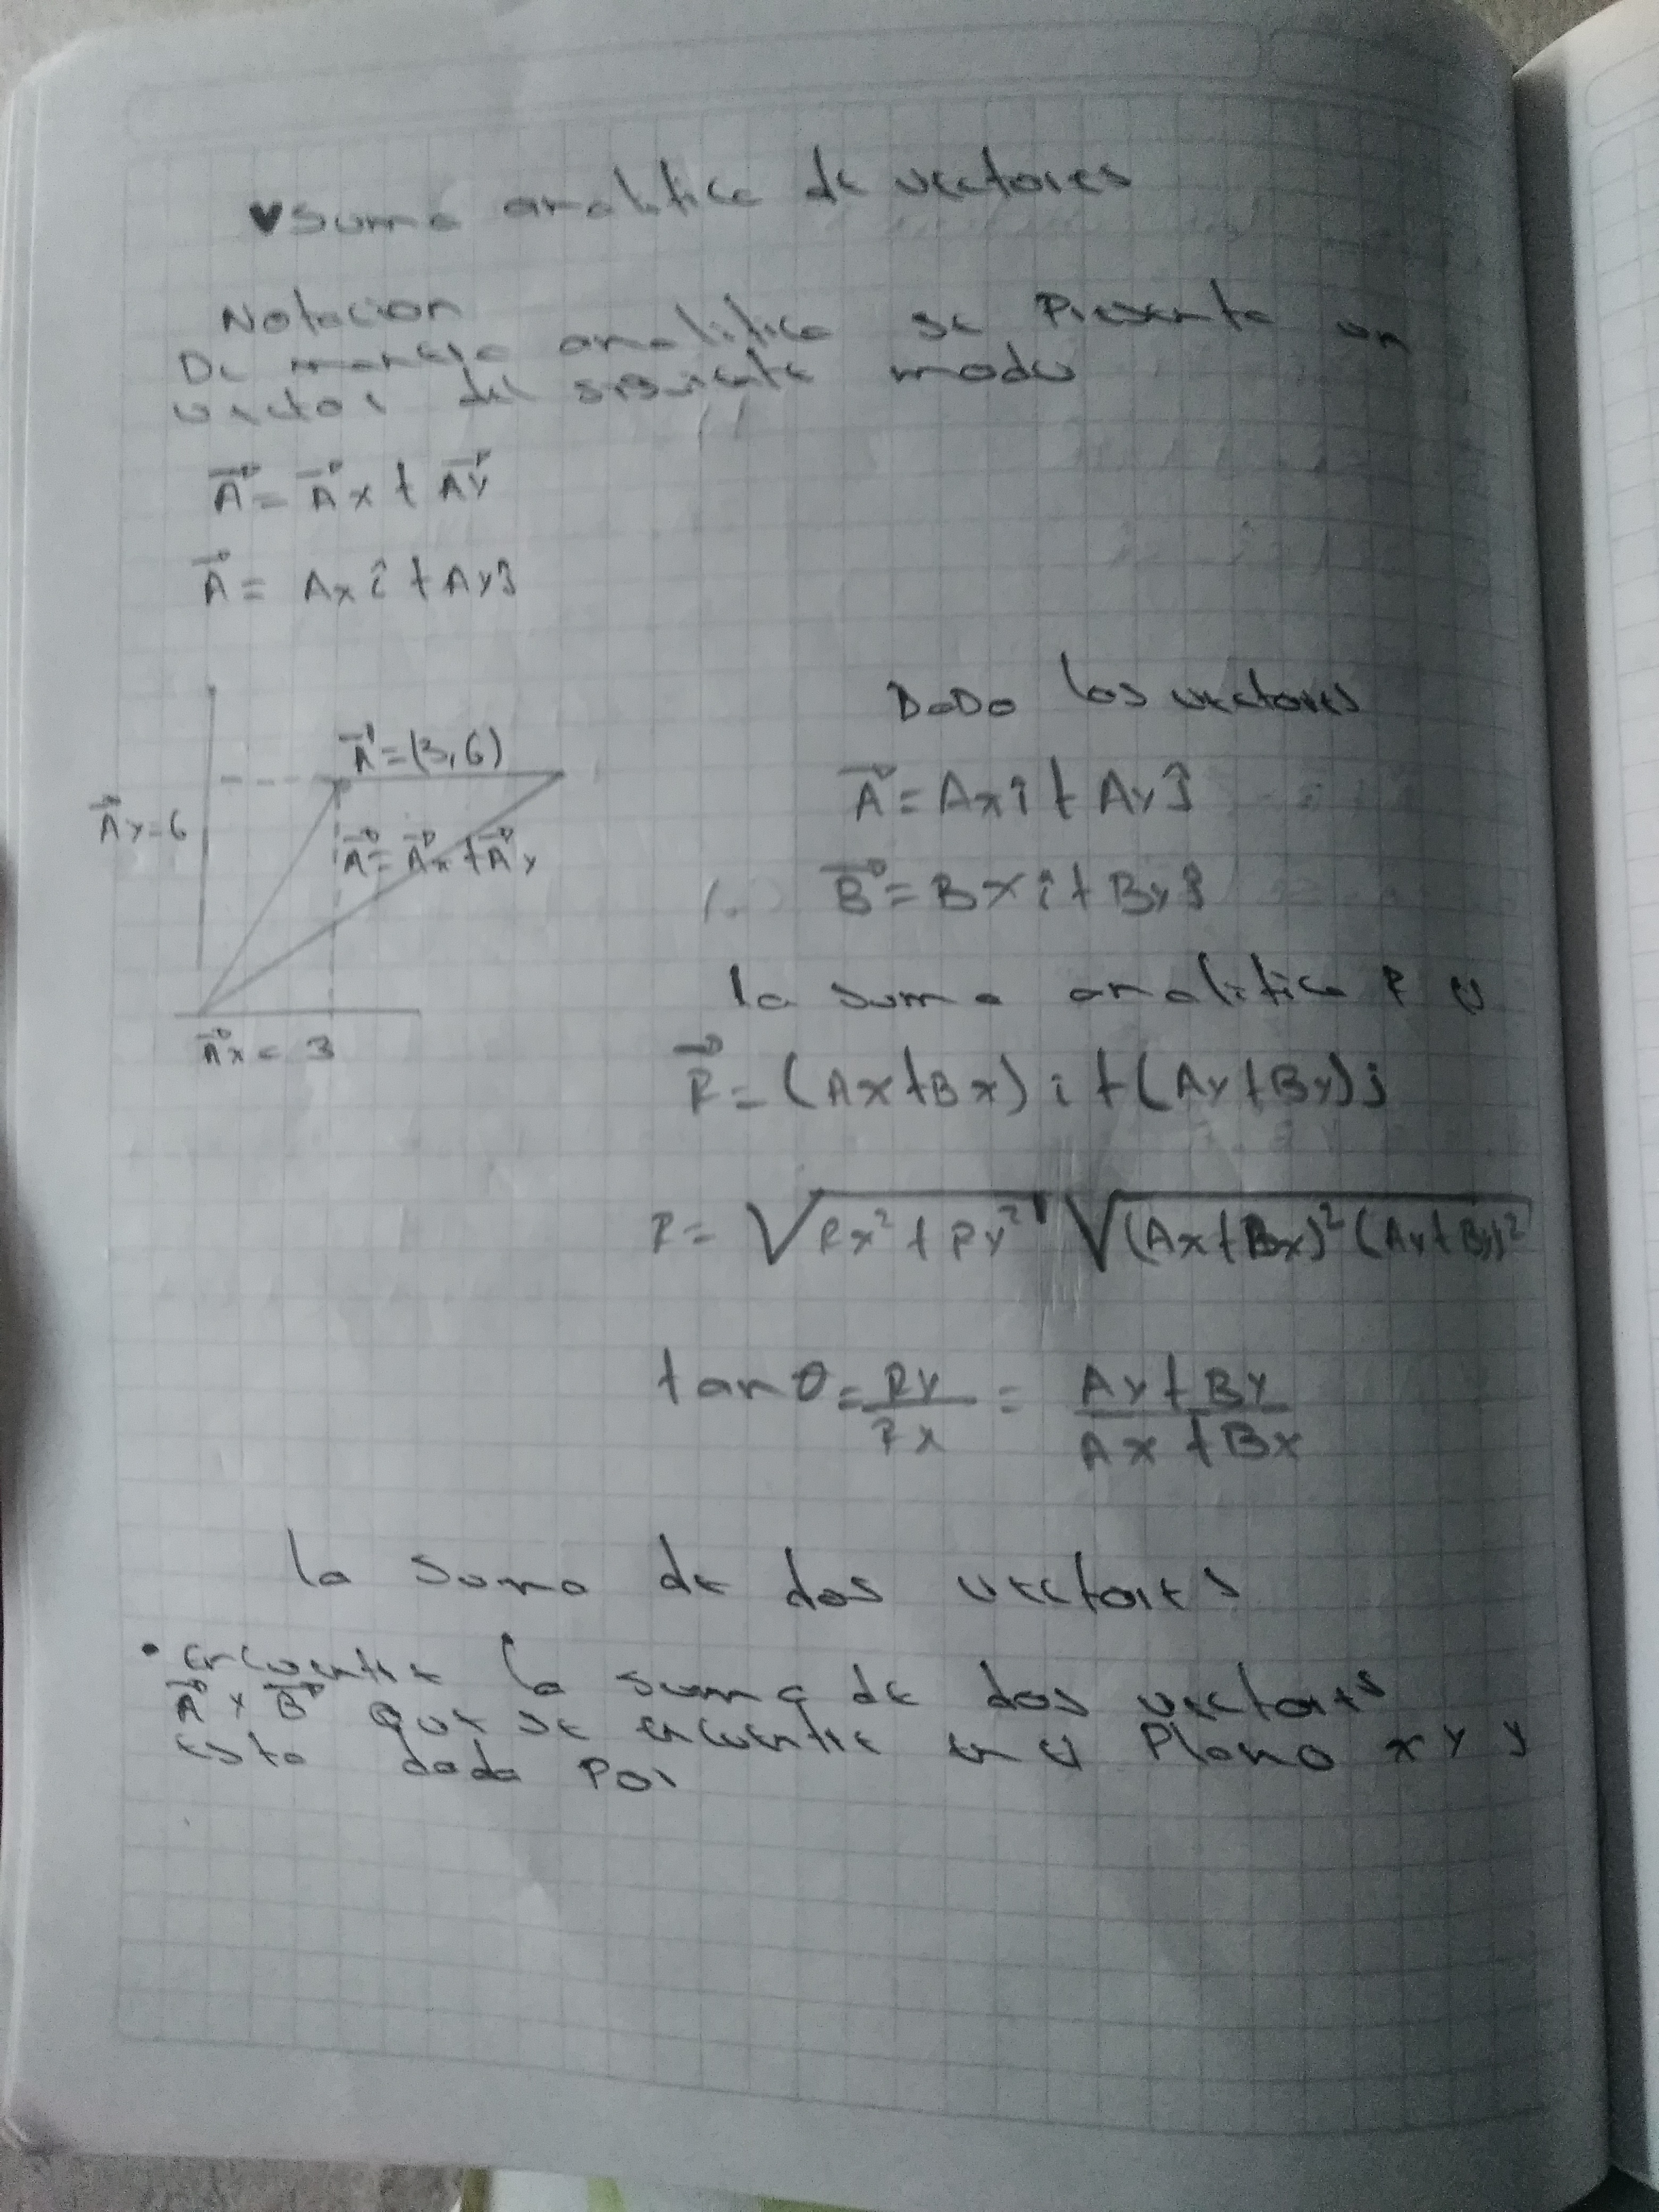 ♥ Suma analitica de vectores
Notacion
De manera analitica se Presenta un
vector del siguiente modo
A⃗ = A⃗x + A⃗y
A⃗ = Ax î + Ay ĵ
A⃗ = (3,6)
A⃗y = 6
A⃗ = A⃗x + A⃗y
A⃗x = 3
DaDo los vectores
A⃗ = Ax î + Ay ĵ
B⃗ = Bx î + By ĵ
la suma analitica R es
R⃗ = (Ax + Bx) i + (Ay + By) j
R = √(Rx² + Ry²) √((Ax + Bx)² (Ay + By)²)
tan θ = Ry/Rx = (Ay + By)/(Ax + Bx)
la suma de dos vectores
• encuentre la suma de dos vectores
A⃗ y B⃗ que se encuentre en el Plano x y y
esta dada Por